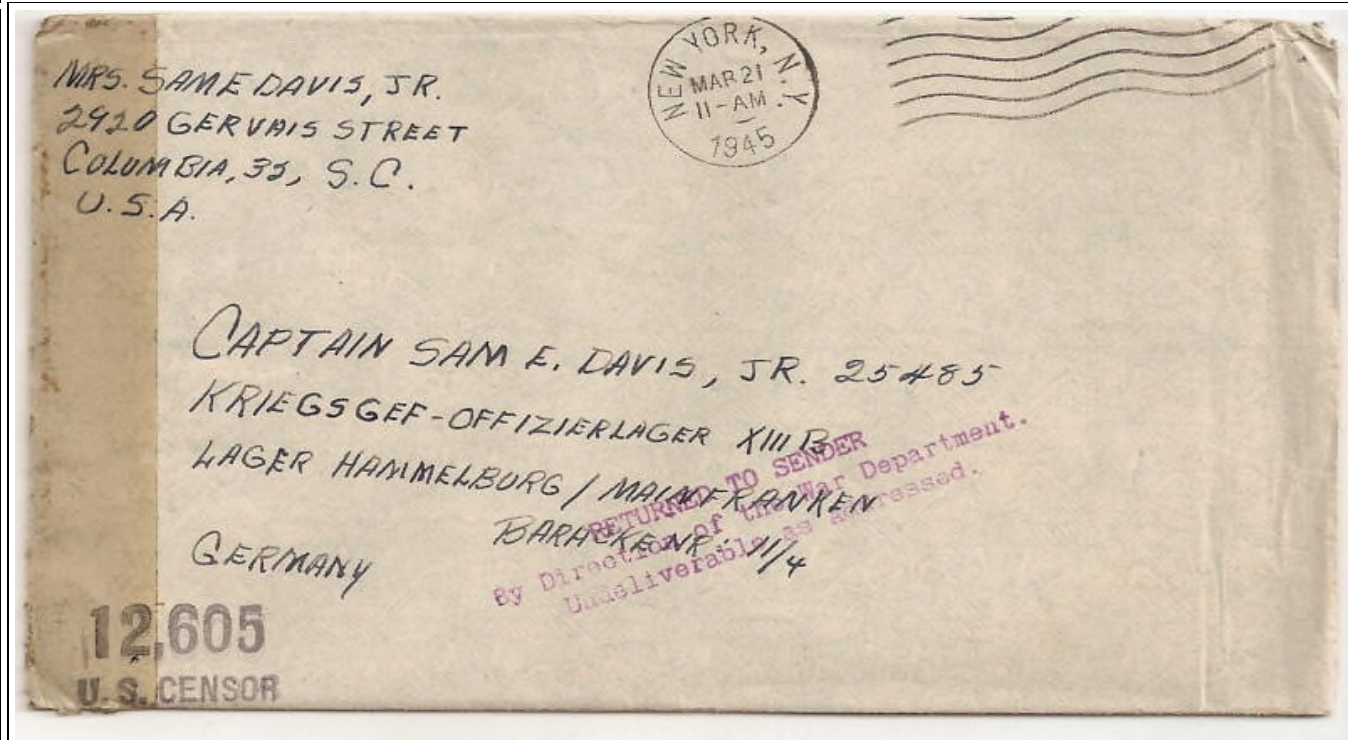 MRS. SAM E DAVIS, JR.
2920 GERVAIS STREET
COLUMBIA, 35, S.C.
U.S.A.
NEW YORK, N.Y.
MAR 21
11-AM
1945
CAPTAIN SAM E. DAVIS, JR. 25485
KRIEGSGEF-OFFIZIERLAGER XIII B
LAGER HAMMELBURG / MAINFRANKEN
BARACKE NR. 11/4
GERMANY
RETURNED TO SENDER
By Direction of the War Department.
Undeliverable as addressed.
12,605
U. S. CENSOR